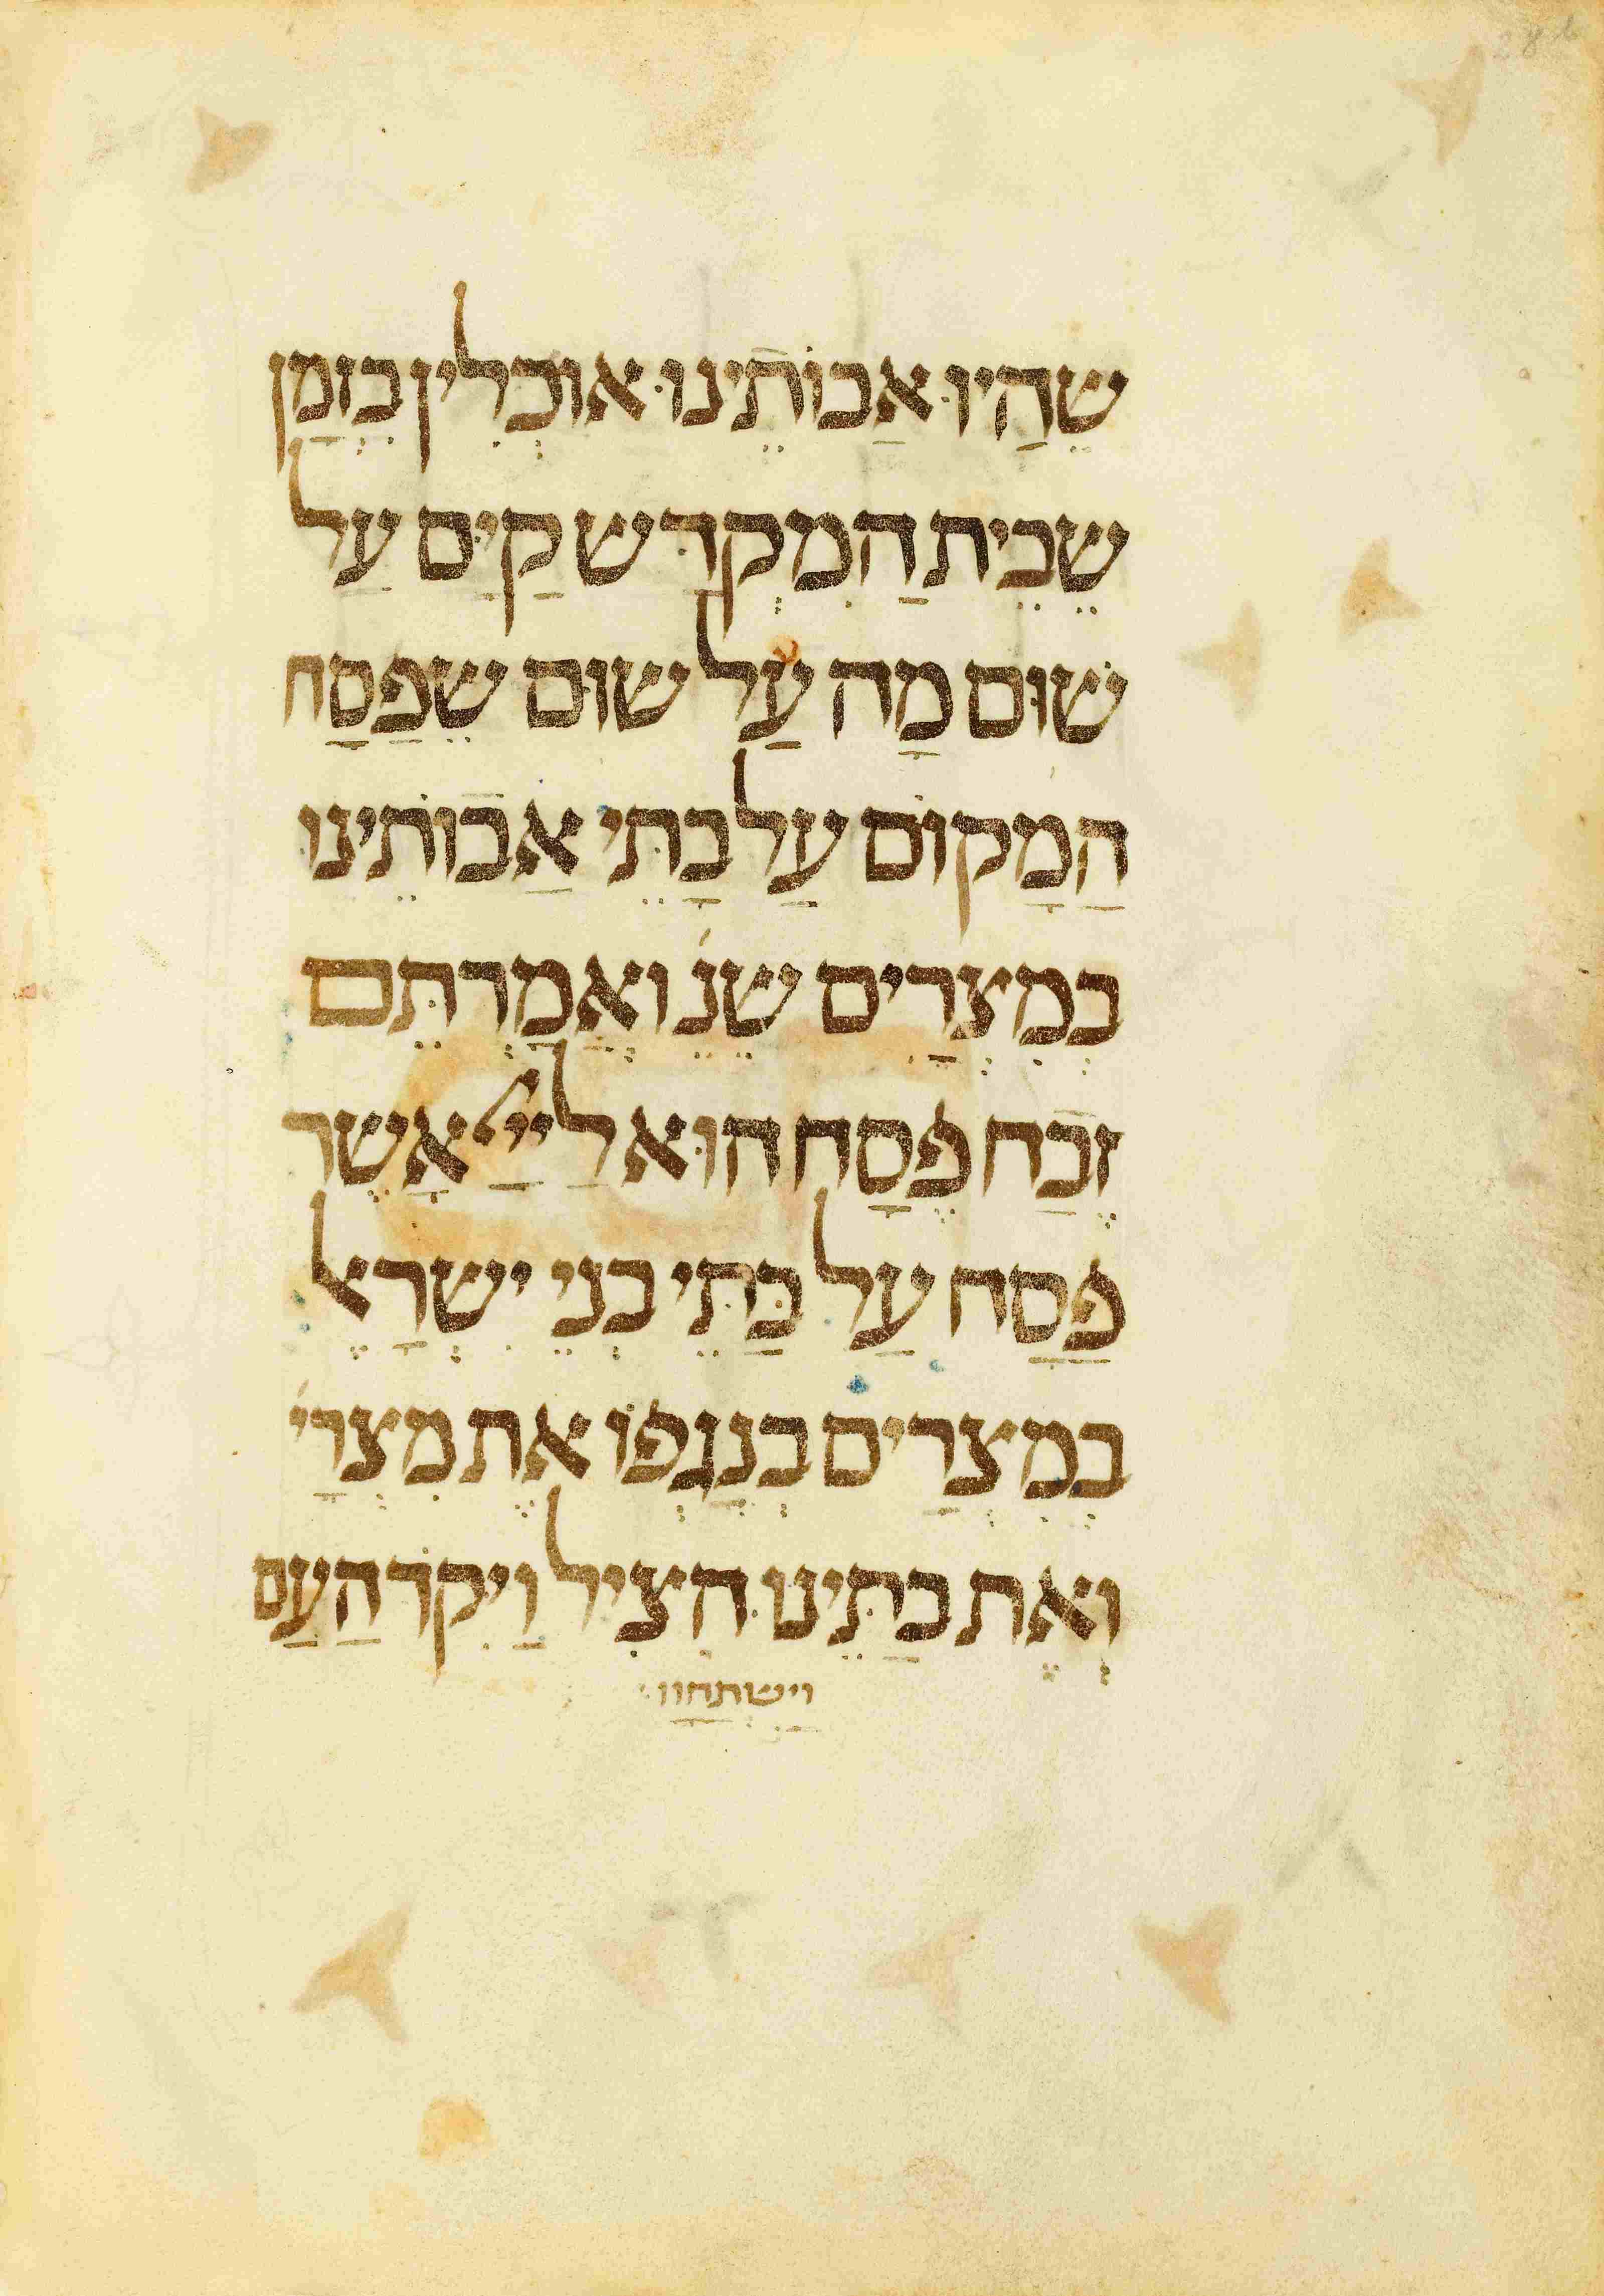 שֶׁהַיוּ אַבוֹתֵינוּ אוֹכְלִין בִזְמַן
שֶׁבֵית הַמִקְדַשׁ קַיָים עַל
שׁוּם מָה עַל שׁוּם שֶׁפַסַח
הַמָקוֹם עַל בָתֵי אַבוֹתֵינוּ
בְמִצְרַיִם שֶׁנֵ׳ וַאֲמַרְתֶם
זֶבַח פֶסַח הוּא לַייָ אֲשֶׁר
פַסַח עַל בַתֵי בְנֵי יִשְׂרָאֵל
בְמִצְרַיִם בְנָגְפוֹ אֶת מִצְרַי׳
וְאֶת בַתֵינוּ הִצִיל וַיִקוֹד הַעַם
וישתחוו